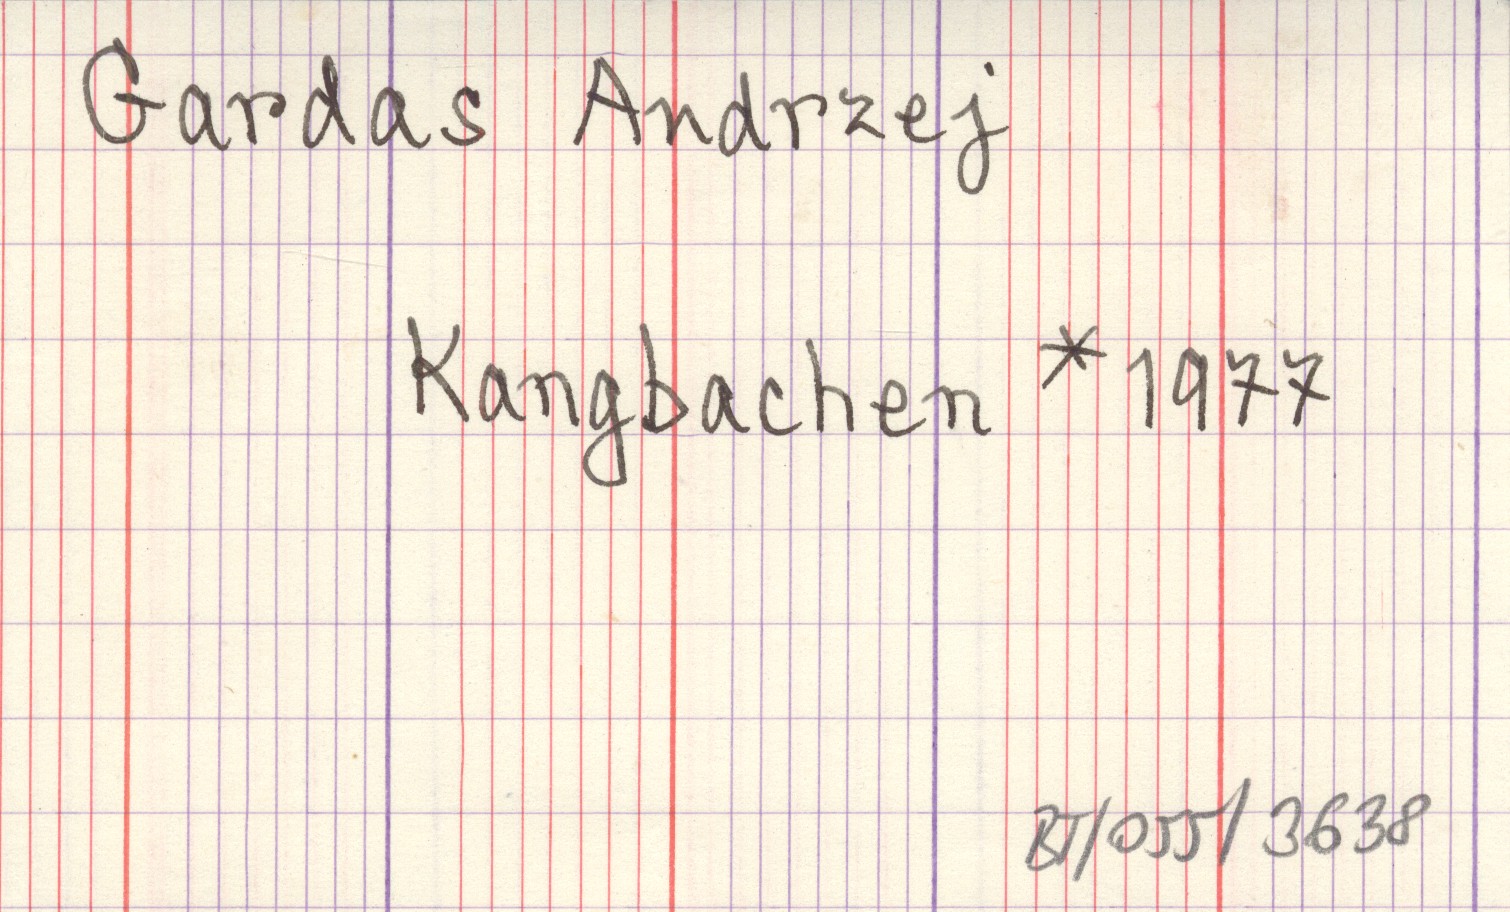 Gardas Andrzej
Kangbachen *1977
BT/055/3638